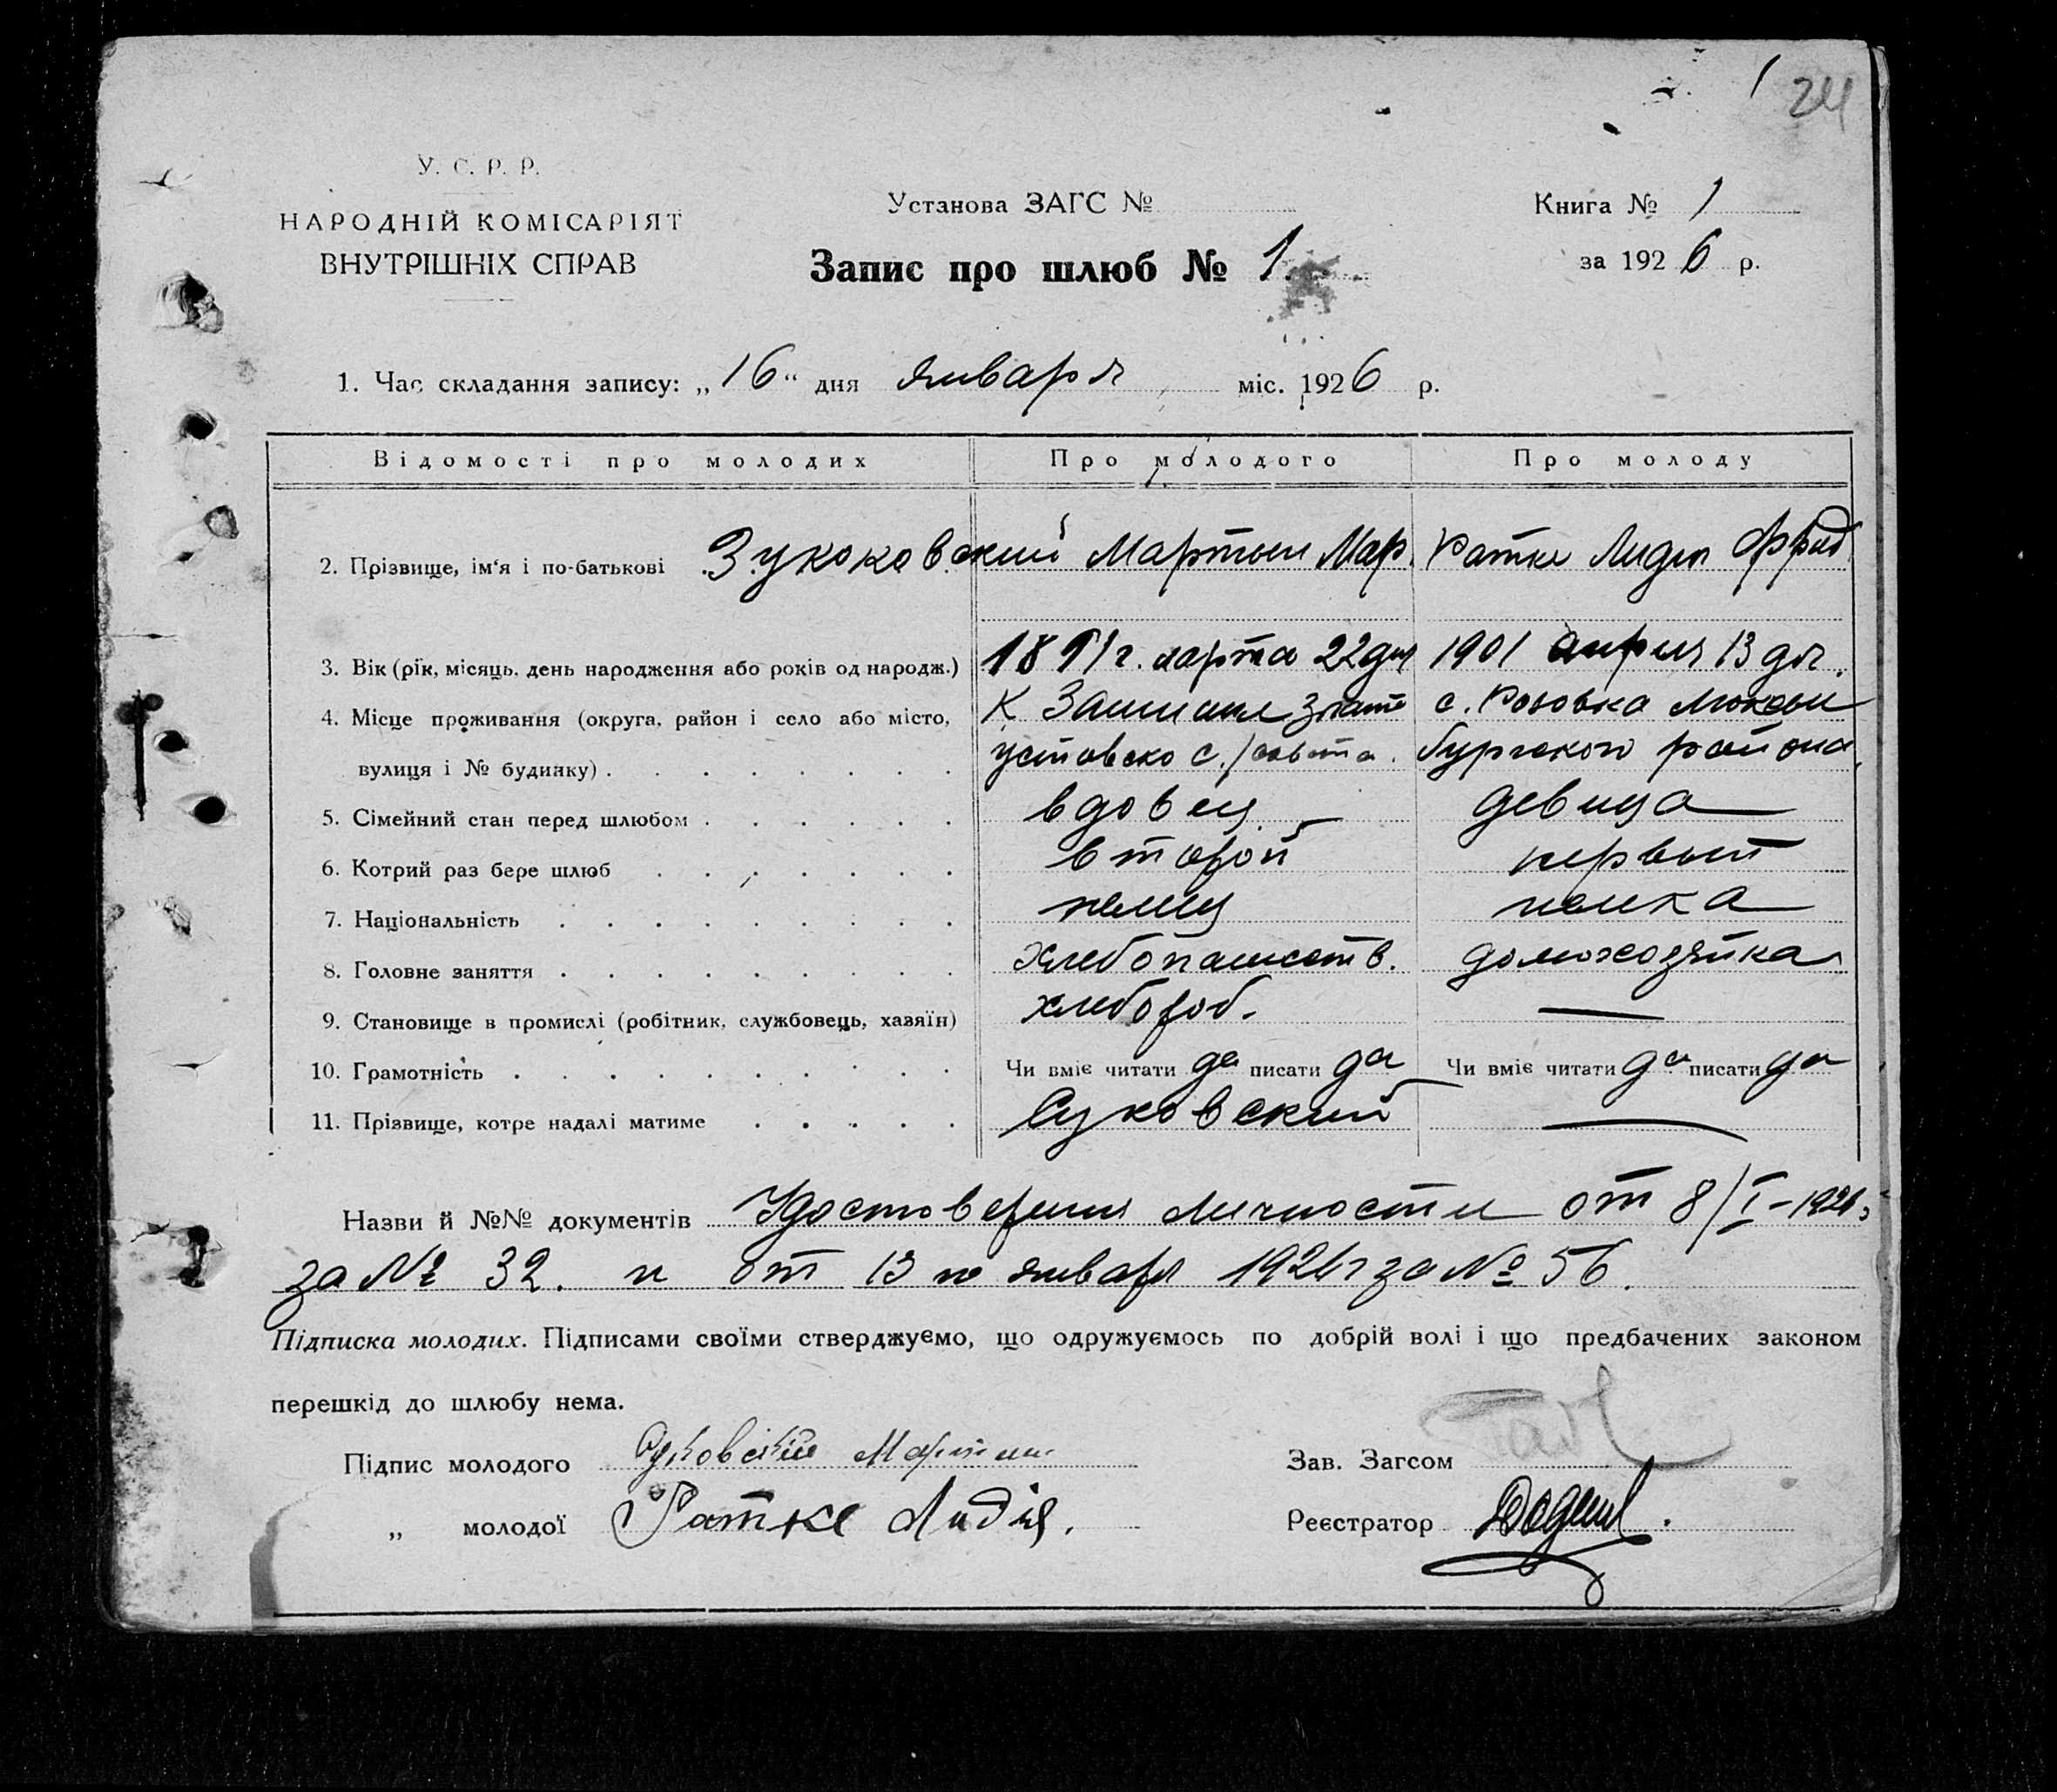 24
У. С. Р. Р.
НАРОДНІЙ КОМІСАРІЯТ
ВНУТРІШНІХ СПРАВ
Установа ЗАГС №
Книга № 1
Запис про шлюб № 1.
за 1926 р.
1. Час складання запису: „16“ дня января міс. 1926 р.
Відомості про молодих Про молодого Про молоду
2. Прізвище, ім‘я і по-батькові Зукоковский Мартын Мар. Ратке Лидия
3. Вік (рік, місяць, день народження або років од народж.) марта 22 дня 1901 апреля 13 дня.
4. Місце проживання (округа, район і село або місто, с. Розовка Люксем
вулиця і № будинку) бургского района
5. Сімейний стан перед шлюбом вдовец девица
6. Котрий раз бере шлюб второй первый
7. Національність немец немка
8. Головне заняття Хлебопашеств. домохозяйка
9. Становище в промислі (робітник, службовець, хазяїн) хлебороб. —
10. Грамотність Чи вміє читати да писати да Чи вміє читати да писати да
11. Прізвище, котре надалі матиме Суковский —
Назви й №№ документів Удостоверения личности от 8/I-1926
за № 32. и от 13 го января 1926 г за № 56.
Підписка молодих. Підписами своїми стверджуємо, що одружуємось по добрій волі і що предбачених законом
перешкід до шлюбу нема.
Підпис молодого Суковский Мартин
Зав. Загсом
„ молодої Ратке Лидія.
Реєстратор